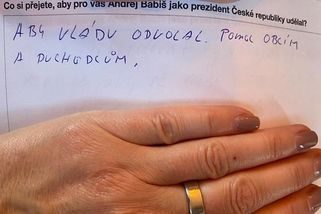 Co si přejete, aby pro vás Andrej Babiš jako prezident České republiky udělal?
ABY VLÁDU ODVOLAL. POMOC OBCÍM
A DUCHODCŮM,